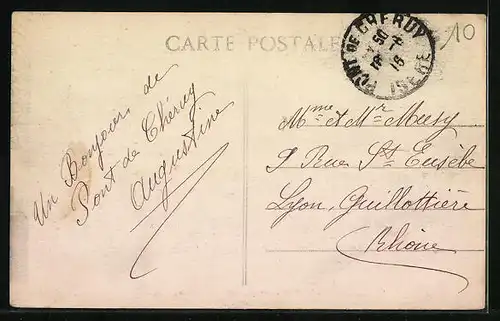 CARTE POSTALE
10
PONT DE CHERUY
ISERE
Un Bonjour de
Pont-de Chéruy
Augustine
Mme et Mr Meesy
9 Rue St Eusèbe
Lyon, Guillottière
Rhône